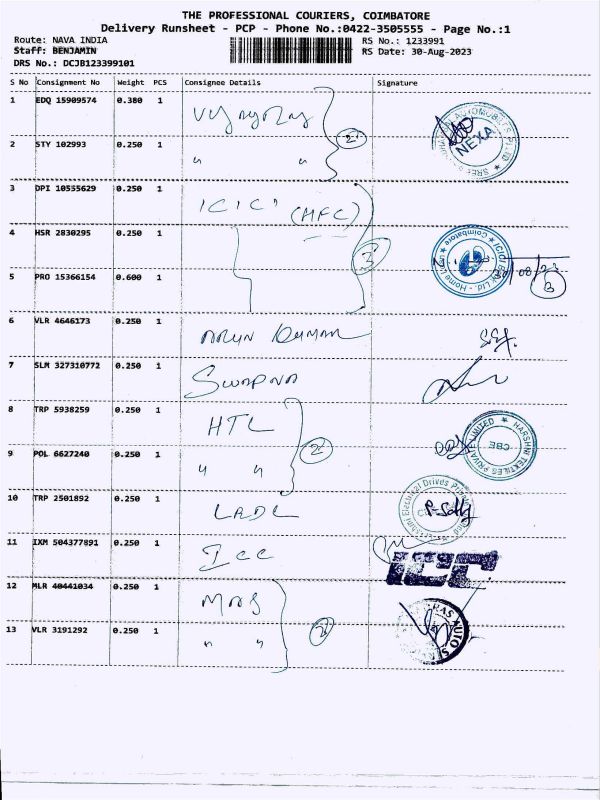 THE PROFESSIONAL COURIERS, COIMBATORE
Delivery Runsheet - PCP - Phone No.:0422-3505555 - Page No.:1
Route: NAVA INDIA RS No.: 1233991
Staff: BENJAMIN RS Date: 30-Aug-2023
DRS No.: DCJB123399101
S No Consignment No Weight PCS Consignee Details Signature
1 EDQ 15909574 0.380 1
NEXA
2 STY 102993 0.250 1 " " 2
3 DPI 10555629 0.250 1 ICICI (HFC)
4 HSR 2830295 0.250 1
3
5 PRO 15366154 0.600 1
6 VLR 4646173 0.250 1 ARUN KUMAR
7 SLM 327310772 0.250 1 SWAPNA
8 TRP 5938259 0.250 1 HTL
HARSHNI TEXTILES PRIVATE LIMITED
CBE
9 POL 6627240 0.250 1 " " 2
10 TRP 2501892 0.250 1 LADL
11 IXM 504377891 0.250 1 ICC
ICC
12 MLR 40441034 0.250 1 MAS
13 VLR 3191292 0.250 1 " " 2